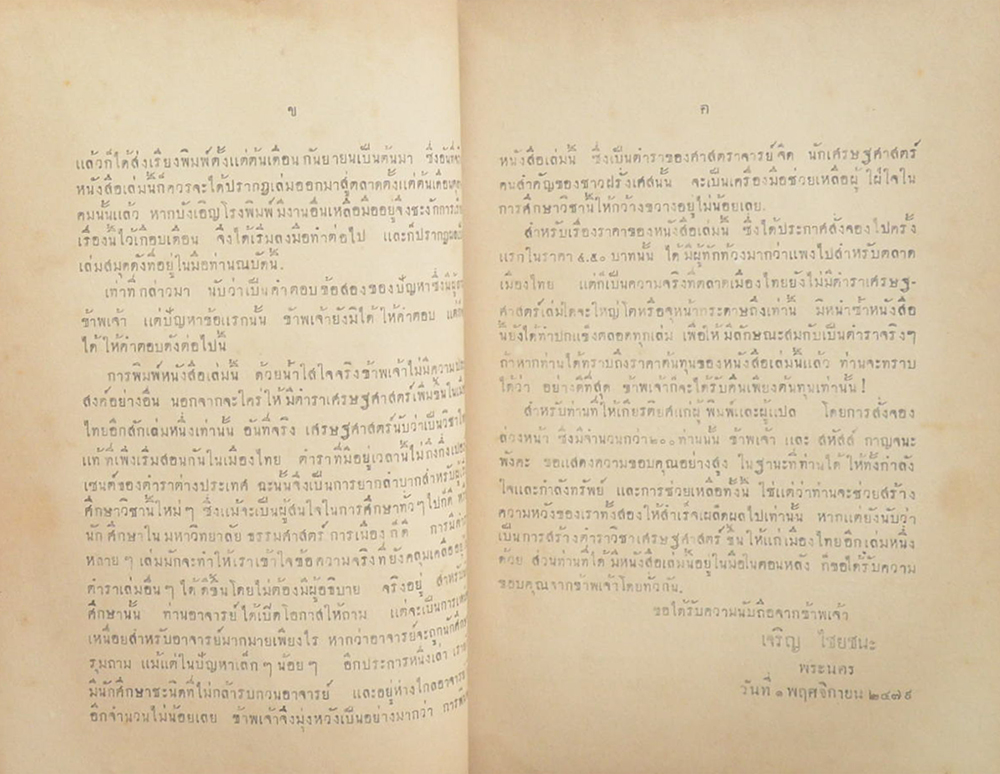 ข
แล้วก็ได้ส่งเรียงพิมพ์ตั้งแต่ต้นเดือนกันยายนเป็นต้นมา ซึ่งอันที่จริง
หนังสือเล่มนี้ก็ควรจะได้ปรากฏเล่มออกมาสู่ตลาดตั้งแต่ต้นเดือน
คมนั้นแล้ว หากบังเอิญโรงพิมพ์มีงานอื่นเหลือมืออยู่จึงชะงักการ
เรื่องนี้ไว้เกือบเดือน จึงได้เริ่มลงมือทำต่อไป และก็ปรากฏ
เล่มสมุดดังที่อยู่ในมือท่านณบัดนี้.
เท่าที่กล่าวมา นับว่าเป็นคำตอบข้อสองของปัญหาซึ่งมีผู้
ข้าพเจ้า แต่ปัญหาข้อแรกนั้น ข้าพเจ้ายังมิได้ให้คำตอบ
ได้ให้คำตอบดังต่อไปนี้
การพิมพ์หนังสือเล่มนี้ ด้วยน้ำใสใจจริงข้าพเจ้าไม่มีความ
สงค์อย่างอื่น นอกจากจะใคร่ให้มีตำราเศรษฐศาสตร์เพิ่มขึ้นใน
ไทยอีกสักเล่มหนึ่งเท่านั้น อันที่จริง เศรษฐศาสตร์นับว่าเป็นวิชา
แท้ ที่เพิ่งเริ่มสอนกันในเมืองไทย ตำราที่มีอยู่เวลานี้ไม่ถึงกึ่งเปอร์
เซนต์ของตำราต่างประเทศ ฉะนั้นจึงเป็นการยากลำบากสำหรับผู้
ศึกษาวิชานี้ใหม่ๆ ซึ่งแม้จะเป็นผู้สนใจในการศึกษาทั่วๆไปก็ดี
นักศึกษาในมหาวิทยาลัยธรรมศาสตร์การเมืองก็ดี การมีตำรา
หลายๆเล่มมักจะทำให้เราเข้าใจข้อความจริงที่ยังคลุมเคลืออยู่
ตำราเล่มอื่นๆได้ดีขึ้นโดยไม่ต้องมีผู้อธิบาย จริงอยู่ สำหรับ
ศึกษานั้น ท่านอาจารย์ได้เปิดโอกาสให้ถาม แต่จะเป็นการ
เหนื่อยสำหรับอาจารย์มากมายเพียงไร หากว่าอาจารย์จะถูกนักศึกษา
รุมถาม แม้แต่ในปัญหาเล็กๆน้อยๆ อีกประการหนึ่งเล่า
มีนักศึกษาชะนิดที่ไม่กล้ารบกวนอาจารย์ และอยู่ห่างไกลอาจารย์
อีกจำนวนไม่น้อยเลย ข้าพเจ้าจึงมุ่งหวังเป็นอย่างมากว่า
ค
หนังสือเล่มนี้ ซึ่งเป็นตำราของศาสตราจารย์จิด นักเศรษฐศาสตร์
คนสำคัญของชาวฝรั่งเศสนั้น จะเป็นเครื่องมือช่วยเหลือผู้ใฝ่ใจใน
การศึกษาวิชานี้ให้กว้างขวางอยู่ไม่น้อยเลย.
สำหรับเรื่องราคาของหนังสือเล่มนี้ ซึ่งได้ประกาศสั่งจองไปครั้ง
แรกในราคา ๔.๕๐ บาทนั้น ได้มีผู้ทักท้วงมากว่าแพงไปสำหรับตลาด
เมืองไทย แต่ก็เป็นความจริงที่ตลาดเมืองไทยยังไม่มีตำราเศรษฐ-
ศาสตร์เล่มใดจะใหญ่โตหรือจุหน้ากระดาษถึงเท่านี้ มิหน้าซ้ำหนังสือ
นี้ยังได้ทำปกแข็งตลอดทุกเล่ม เพื่อให้มีลักษณะสมกับเป็นตำราจริงๆ
ถ้าหากท่านได้ทราบถึงราคาต้นทุนของหนังสือเล่มนี้แล้ว ท่านจะทราบ
ได้ว่า อย่างดีที่สุด ข้าพเจ้าก็จะได้รับคืนเพียงต้นทุนเท่านั้น!
สำหรับท่านที่ให้เกียรติยศแก่ผู้พิมพ์และผู้แปล โดยการสั่งจอง
ล่วงหน้า ซึ่งมีจำนวนกว่า๒๐๐ท่านนั้น ข้าพเจ้า และ สหัสส์ กาญจนะ
พังคะ ขอแสดงความขอบคุณอย่างสูง ในฐานะที่ท่านได้ให้ทั้งกำลัง
ใจและกำลังทรัพย์ และการช่วยเหลือทั้งนี้ ใช่แต่ว่าท่านจะช่วยสร้าง
ความหวังของเราทั้งสองให้สำเร็จเผล็ดผลไปเท่านั้น หากแต่ยังนับว่า
เป็นการสร้างตำราวิชาเศรษฐศาสตร์ขึ้นให้แก่เมืองไทยอีกเล่มหนึ่ง
ด้วย ส่วนท่านที่ได้มีหนังสือเล่มนี้อยู่ในมือในตอนหลัง ก็ขอได้รับความ
ขอบคุณจากข้าพเจ้าโดยทั่วกัน.
ขอได้รับความนับถือจากข้าพเจ้า
เจริญ ไชยชนะ
พระนคร
วันที่ ๑ พฤศจิกายน ๒๔๗๙